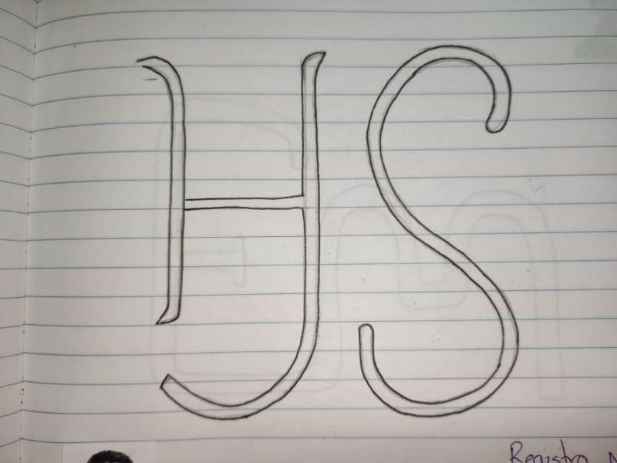 HS
Registro